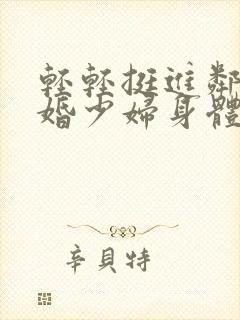 輕輕挺進鄰
婚少婦身體
辛貝特